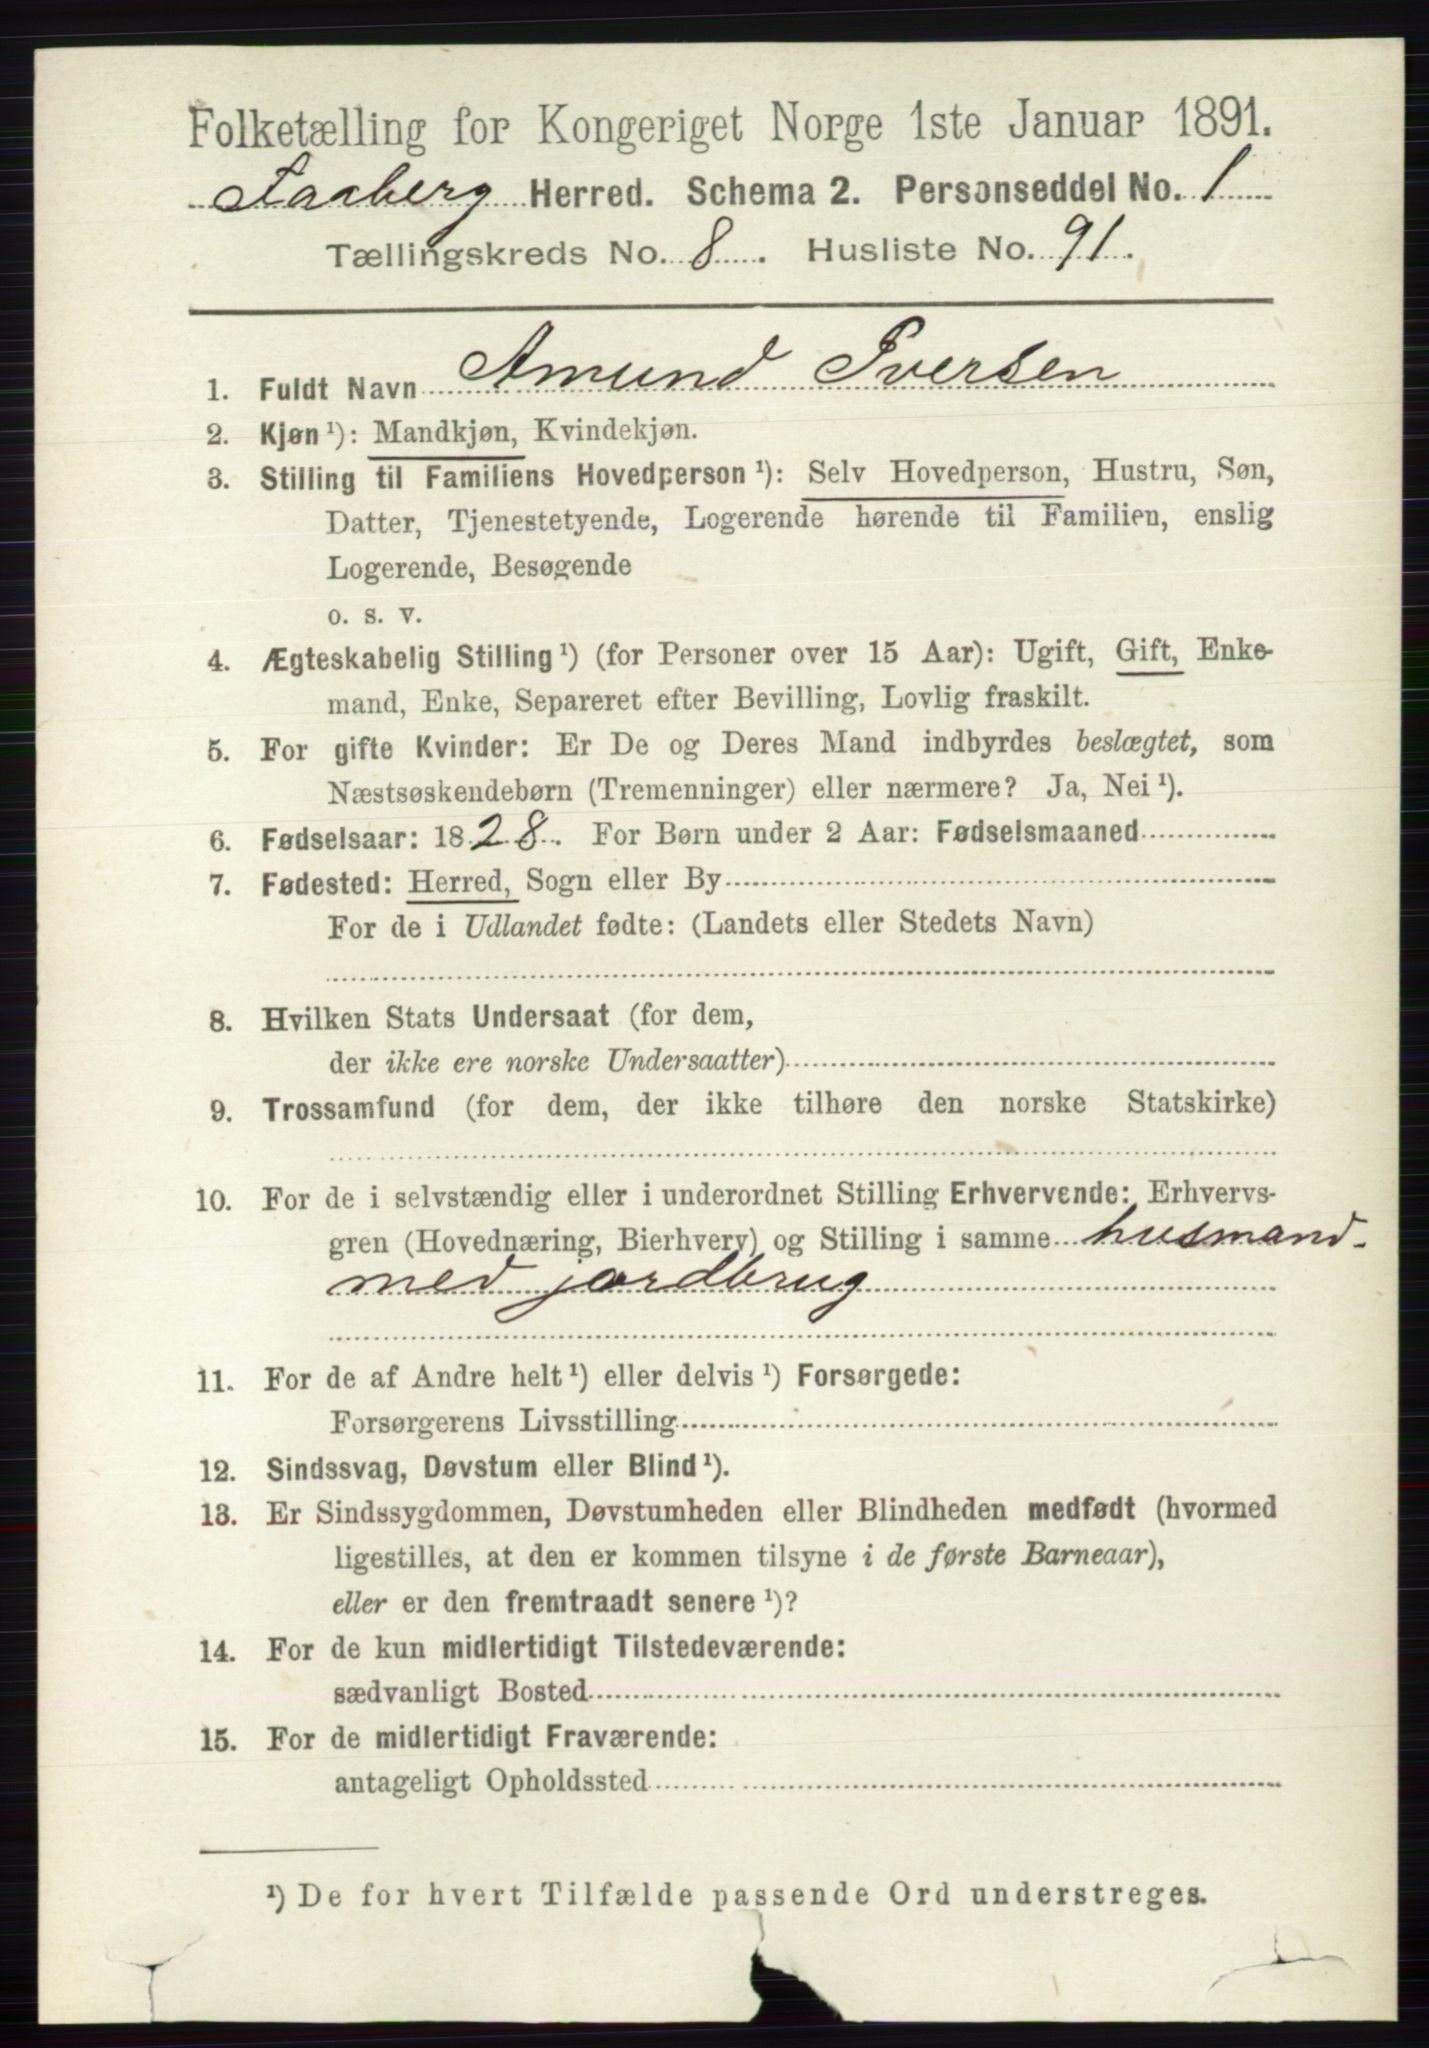 Folketælling for Kongeriget Norge 1ste Januar 1891.
Faaberg Herred. Schema 2. Personseddel No. 1
Tællingskreds No. 8. Husliste No. 91.
1. Fuldt Navn Amund Iversen
2. Kjøn ¹): Mandkjøn, Kvindekjøn.
3. Stilling til Familiens Hovedperson ¹): Selv Hovedperson, Hustru, Søn,
Datter, Tjenestetyende, Logerende hørende til Familien, enslig
Logerende, Besøgende
o. s. v.
4. Ægteskabelig Stilling ¹) (for Personer over 15 Aar): Ugift, Gift, Enke-
mand, Enke, Separeret efter Bevilling, Lovlig fraskilt.
5. For gifte Kvinder: Er De og Deres Mand indbyrdes beslægtet, som
Næstsøskendebørn (Tremenninger) eller nærmere? Ja, Nei ¹).
6. Fødselsaar: 1828. For Børn under 2 Aar: Fødselsmaaned
7. Fødested: Herred, Sogn eller By
For de i Udlandet fødte: (Landets eller Stedets Navn)
8. Hvilken Stats Undersaat (for dem,
der ikke ere norske Undersaatter)
9. Trossamfund (for dem, der ikke tilhøre den norske Statskirke)
10. For de i selvstændig eller i underordnet Stilling Erhvervende: Erhvervs-
gren (Hovednæring, Bierhverv) og Stilling i samme husmand.
med jordbrug
11. For de af Andre helt ¹) eller delvis ¹) Forsørgede:
Forsørgerens Livsstilling
12. Sindssvag, Døvstum eller Blind ¹).
13. Er Sindssygdommen, Døvstumheden eller Blindheden medfødt (hvormed
ligestilles, at den er kommen tilsyne i de første Barneaar),
eller er den fremtraadt senere ¹)?
14. For de kun midlertidigt Tilstedeværende:
sædvanligt Bosted
15. For de midlertidigt Fraværende:
antageligt Opholdssted
¹) De for hvert Tilfælde passende Ord understreges.